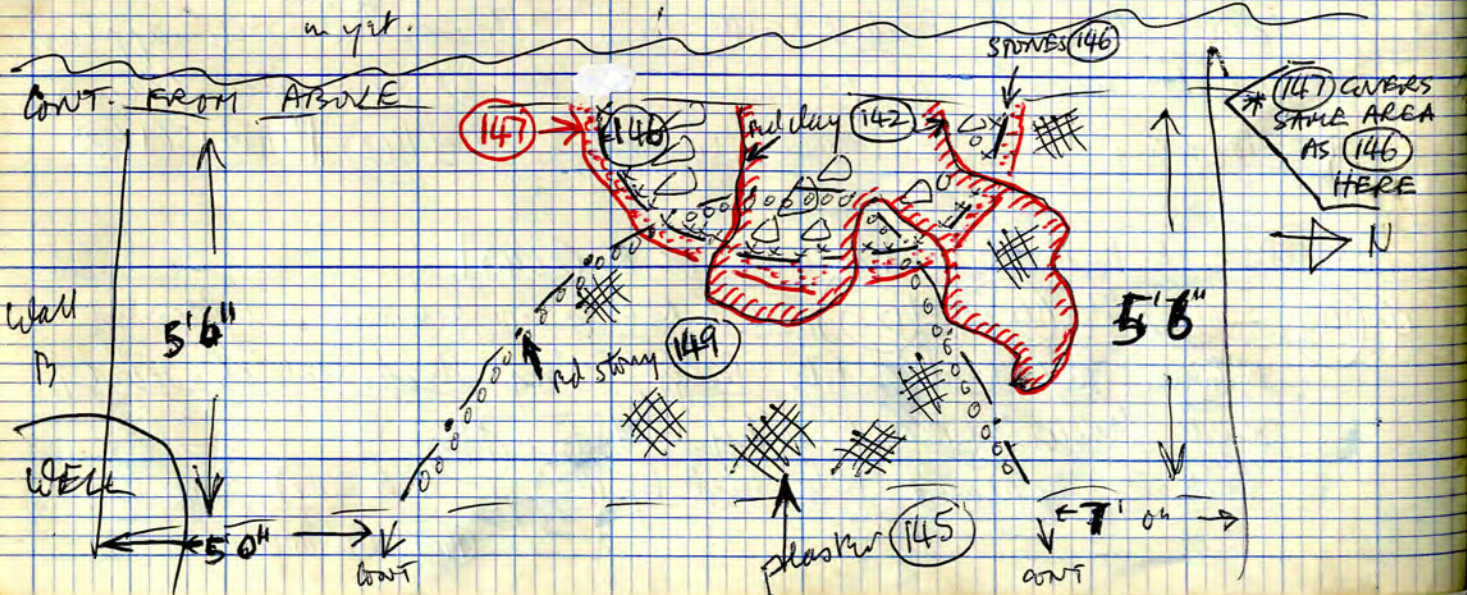 in yet.
CONT. FROM ABOVE
STONES 146
147
146
red clay 142
* 147 COVERS
SAME AREA
AS 146
HERE
N
Wall
B
5'6"
5'6"
red stony 149
WELL
5 0"
CONT
plaster 145
7' 0"
CONT